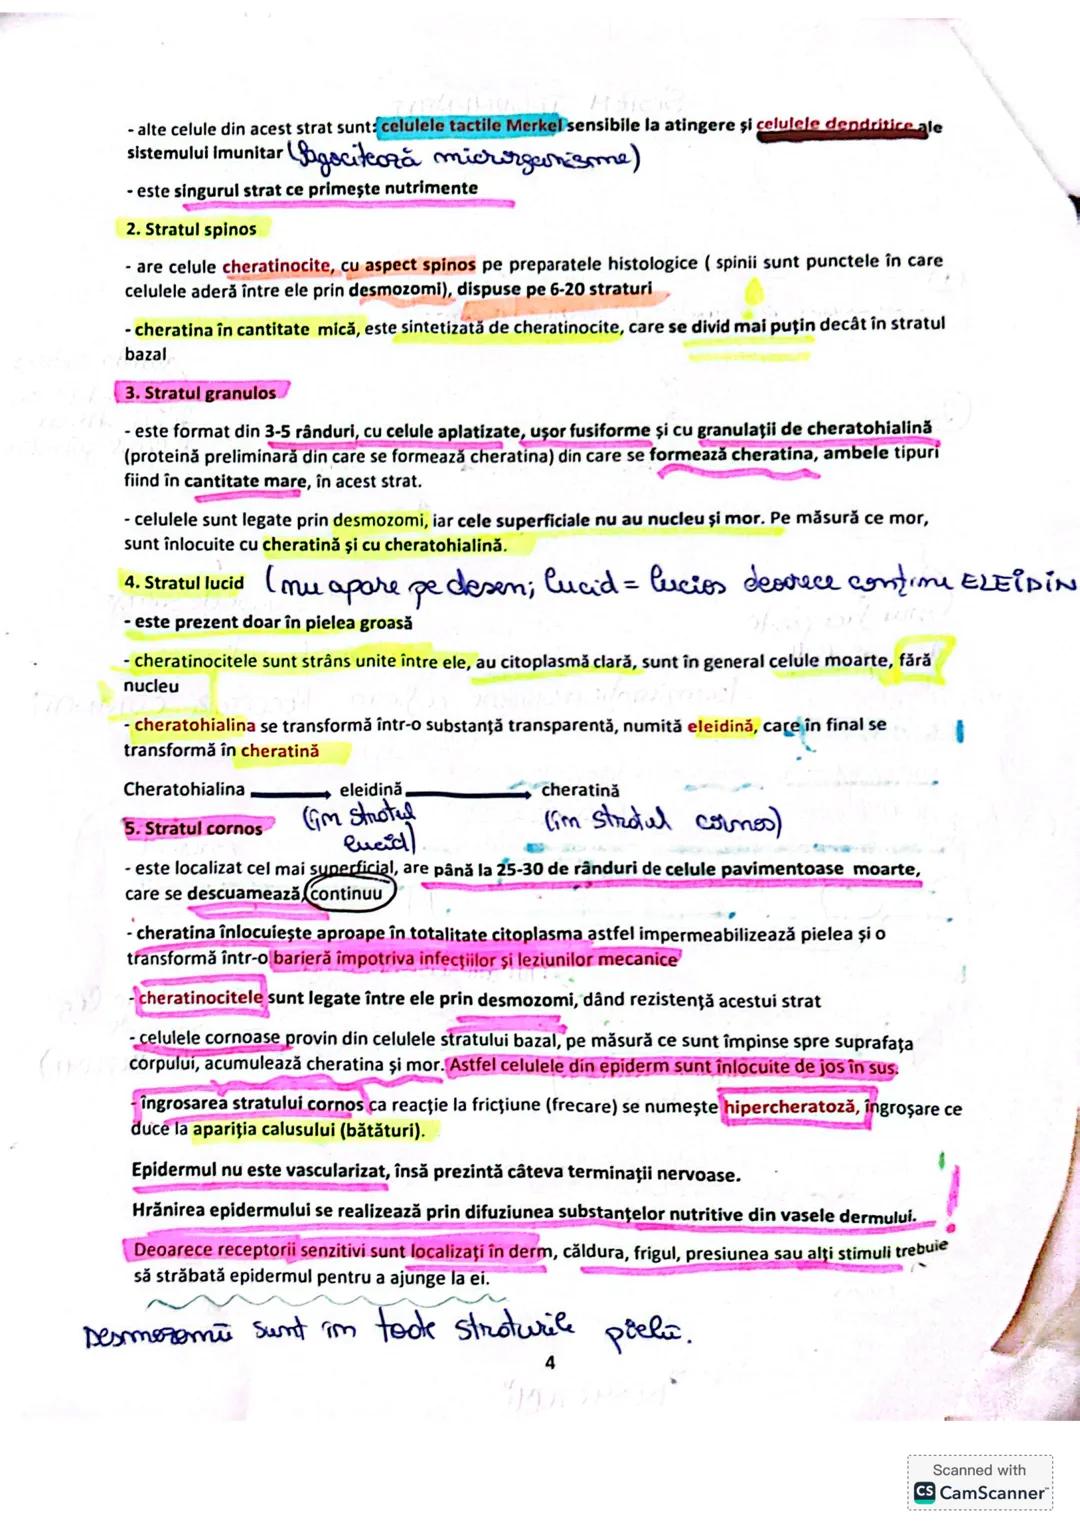 - alte celule din acest strat sunt: celulele tactile Merkel sensibile la atingere și celulele dendritice ale
sistemului imunitar (fagocitează microrganisme)
- este singurul strat ce primește nutrimente
2. Stratul spinos
- are celule cheratinocite, cu aspect spinos pe preparatele histologice ( spinii sunt punctele în care
celulele aderă între ele prin desmozomi), dispuse pe 6-20 straturi
- cheratina în cantitate mică, este sintetizată de cheratinocite, care se divid mai puțin decât în stratul
bazal
3. Stratul granulos
- este format din 3-5 rânduri, cu celule aplatizate, ușor fusiforme și cu granulații de cheratohialină
(proteină preliminară din care se formează cheratina) din care se formează cheratina, ambele tipuri
fiind în cantitate mare, în acest strat.
- celulele sunt legate prin desmozomi, iar cele superficiale nu au nucleu și mor. Pe măsură ce mor,
sunt înlocuite cu cheratină și cu cheratohialină.
4. Stratul lucid (nu apare pe desen; lucid = lucios deoarece conține ELEIDIN
- este prezent doar în pielea groasă
- cheratinocitele sunt strâns unite între ele, au citoplasmă clară, sunt în general celule moarte, fără
nucleu
- cheratohialina se transformă într-o substanță transparentă, numită eleidină, care în final se
transformă în cheratină
Cheratohialina eleidină cheratină
(în stratul lucid) (în stratul cornos)
5. Stratul cornos
- este localizat cel mai superficial, are până la 25-30 de rânduri de celule pavimentoase moarte,
care se descuamează continuu
- cheratina înlocuiește aproape în totalitate citoplasma astfel impermeabilizează pielea și o
transformă într-o barieră împotriva infecțiilor și leziunilor mecanice
- cheratinocitele sunt legate între ele prin desmozomi, dând rezistență acestui strat
- celulele cornoase provin din celulele stratului bazal, pe măsură ce sunt împinse spre suprafața
corpului, acumulează cheratina și mor. Astfel celulele din epiderm sunt înlocuite de jos în sus.
- îngrosarea stratului cornos ca reacție la fricțiune (frecare) se numește hipercheratoză, îngroșare ce
duce la apariția calusului (bătături).
Epidermul nu este vascularizat, însă prezintă câteva terminații nervoase.
Hrănirea epidermului se realizează prin difuziunea substanțelor nutritive din vasele dermului. !
Deoarece receptorii senzitivi sunt localizați în derm, căldura, frigul, presiunea sau alți stimuli trebuie
să străbată epidermul pentru a ajunge la ei.
Desmozomii sunt în toate straturile pielii.
4
Scanned with
CS CamScanner